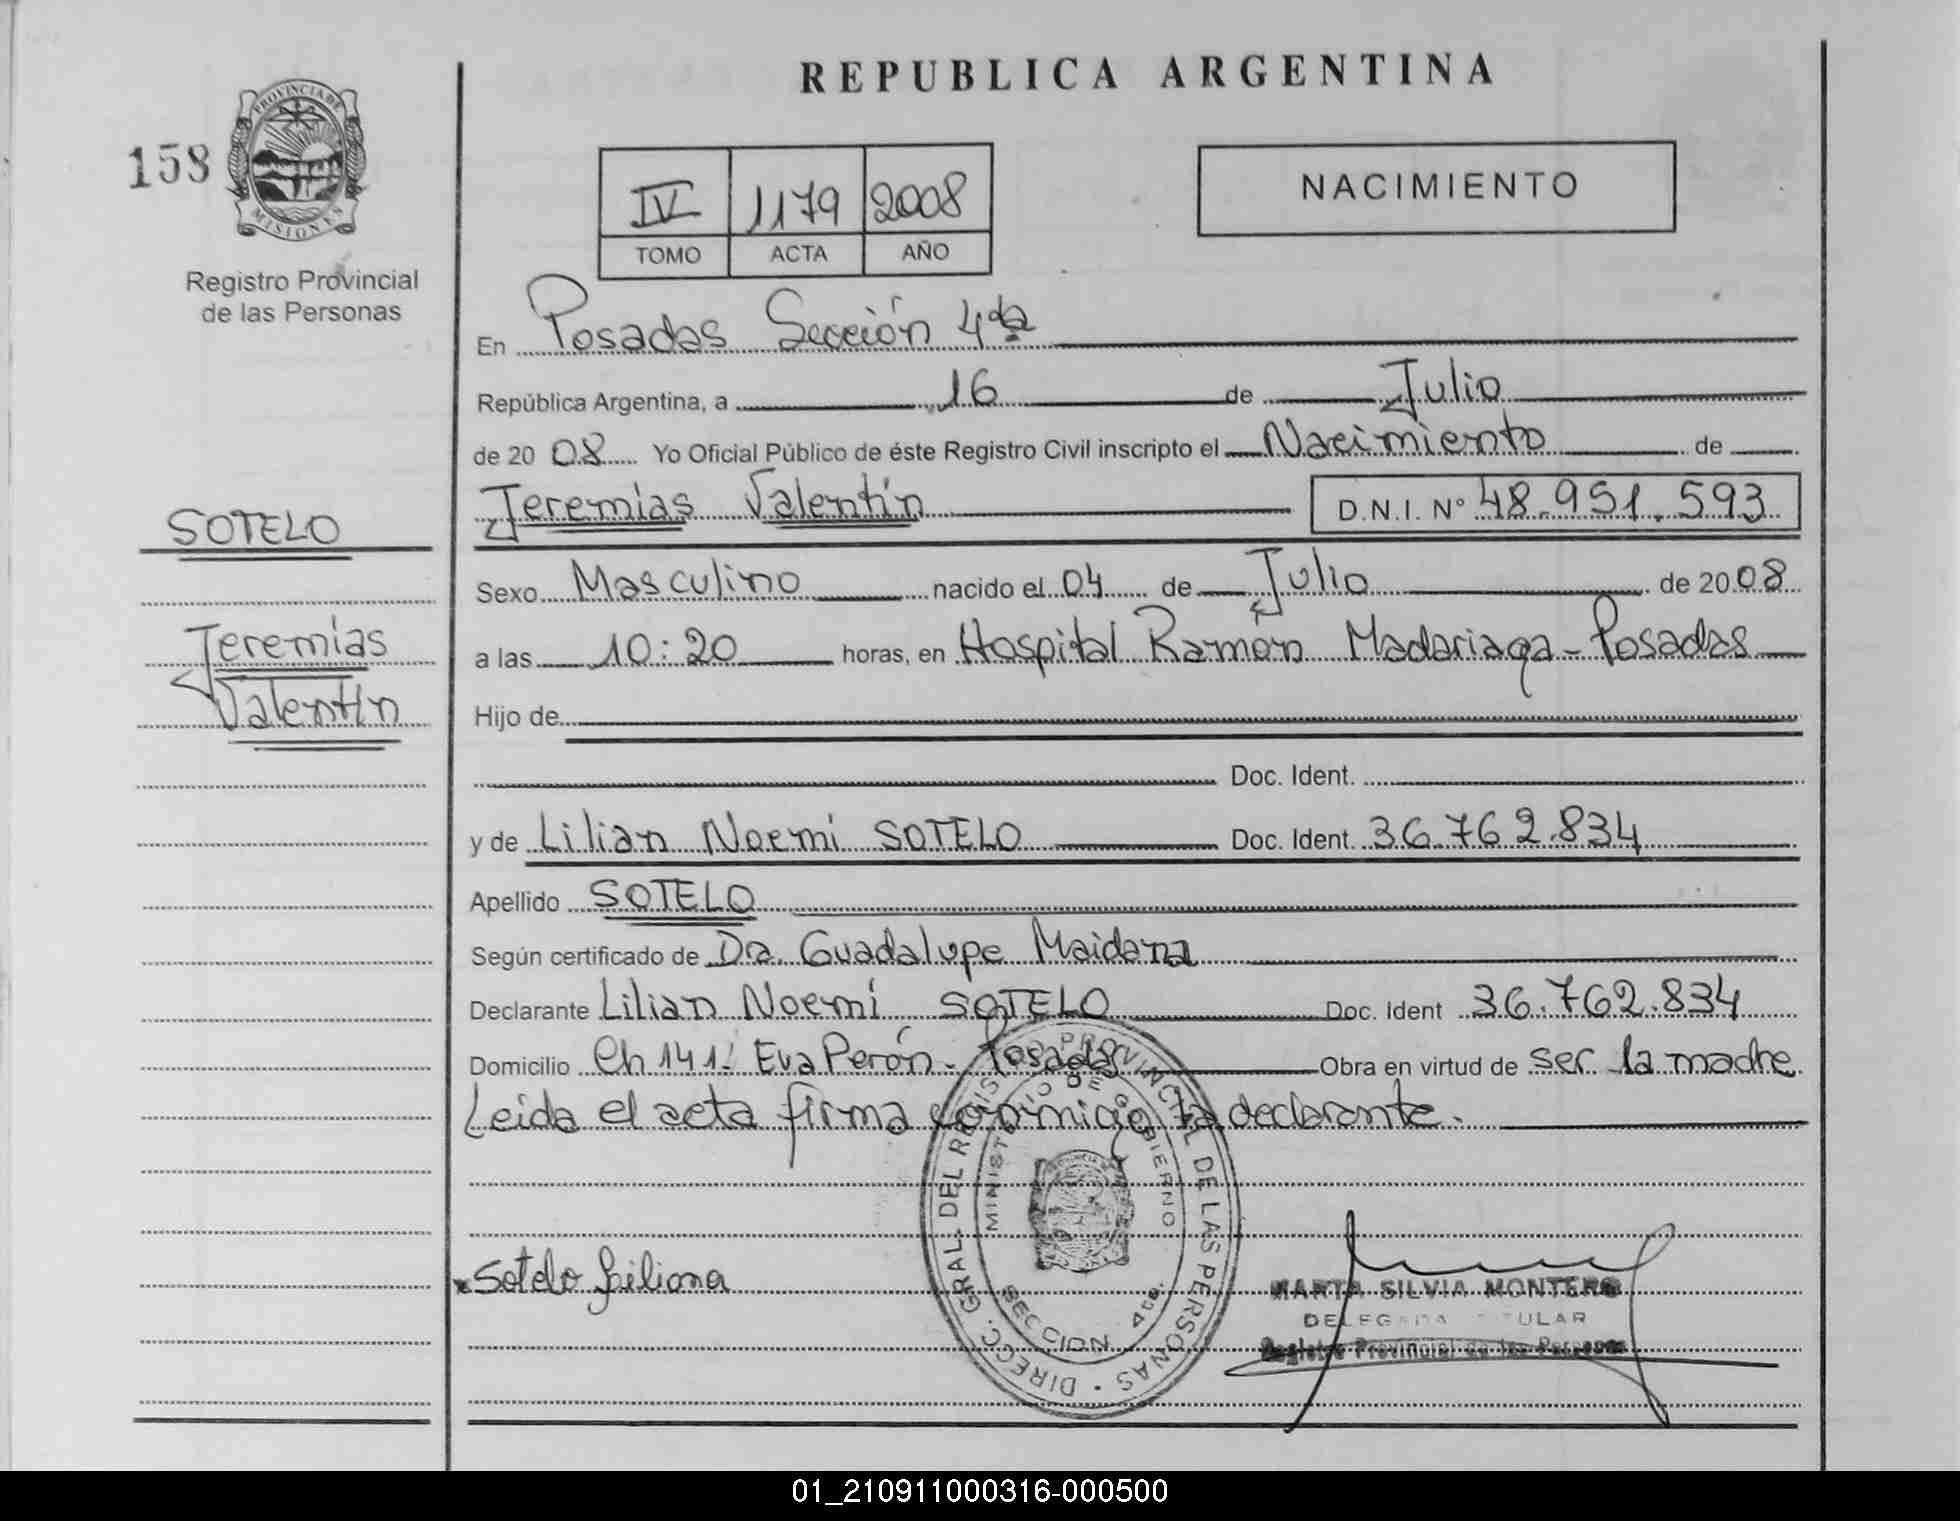 REPUBLICA ARGENTINA
158
PROVINCIA DE
MISIONES
Registro Provincial
de las Personas
IV 1179 2008
TOMO ACTA AÑO
NACIMIENTO
En Posadas Sección 4ta
República Argentina, a 16 de Julio
de 2008 Yo Oficial Público de éste Registro Civil inscripto el Nacimiento de
Jeremías Valentín D.N.I. Nº 48.951.593
SOTELO
Jeremías
Valentín
Sexo Masculino nacido el 04 de Julio de 2008
a las 10:20 horas, en Hospital Ramón Madariaga - Posadas
Hijo de
Doc. Ident.
y de Lilian Noemí SOTELO Doc. Ident. 36.762.834
Apellido SOTELO
Según certificado de Dra. Guadalupe Maidana
Declarante Lilian Noemí SOTELO Doc. Ident 36.762.834
Domicilio Ch 141. Eva Perón - Posadas Obra en virtud de ser la madre
Leída el acta firma conmigo la declarante.
DIRECC. GRAL. DEL REGISTRO PROVINCIAL DE LAS PERSONAS
MINISTERIO DE GOBIERNO
SECCION 4ta.
Sotelo Liliana
MARTA SILVIA MONTERO
DELEGADA TITULAR
Registro Provincial de las Personas
01_210911000316-000500